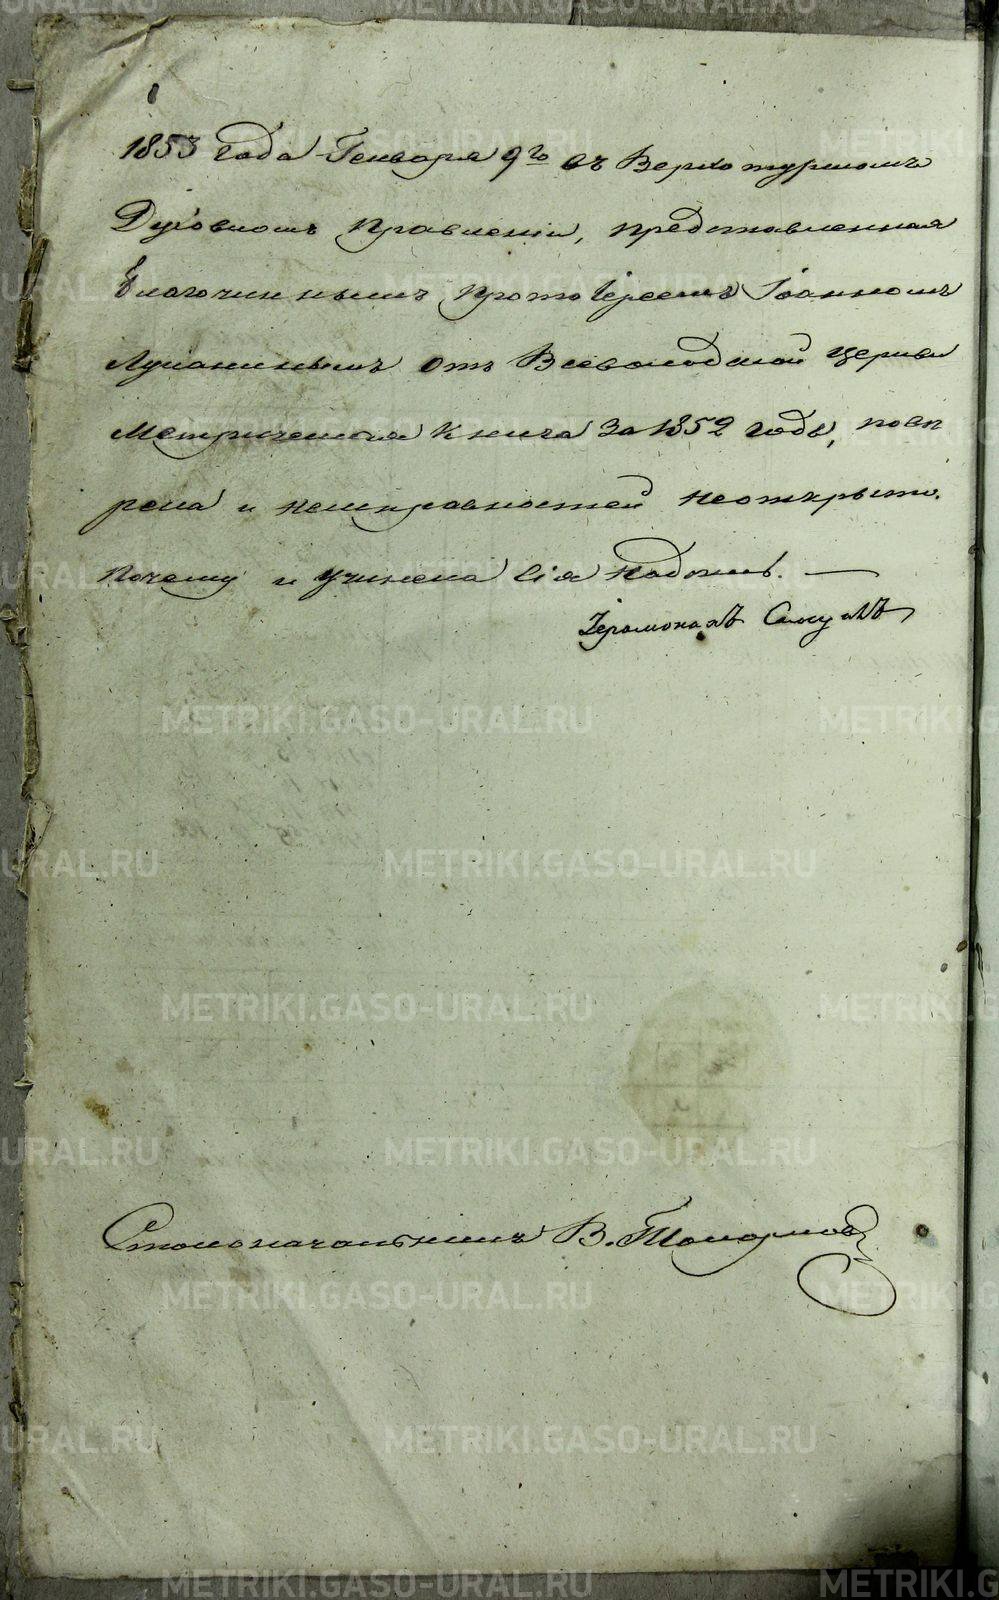 1853 года Генваря 9го въ Верхотурскомъ
Духовномъ Правленіи, представленная
Благочиннымъ Протоіереемъ Іоанномъ
Луканинымъ отъ Всеволодской церкви
Метрическая Книга За 1852 годъ, повѣ
рена и неисправностей неоткрыто.
Почему и Учинена Сія Надпись. —
Іеромонахъ Самуилъ
Столоначальникъ В.
METRIKI.GASO-URAL.RU